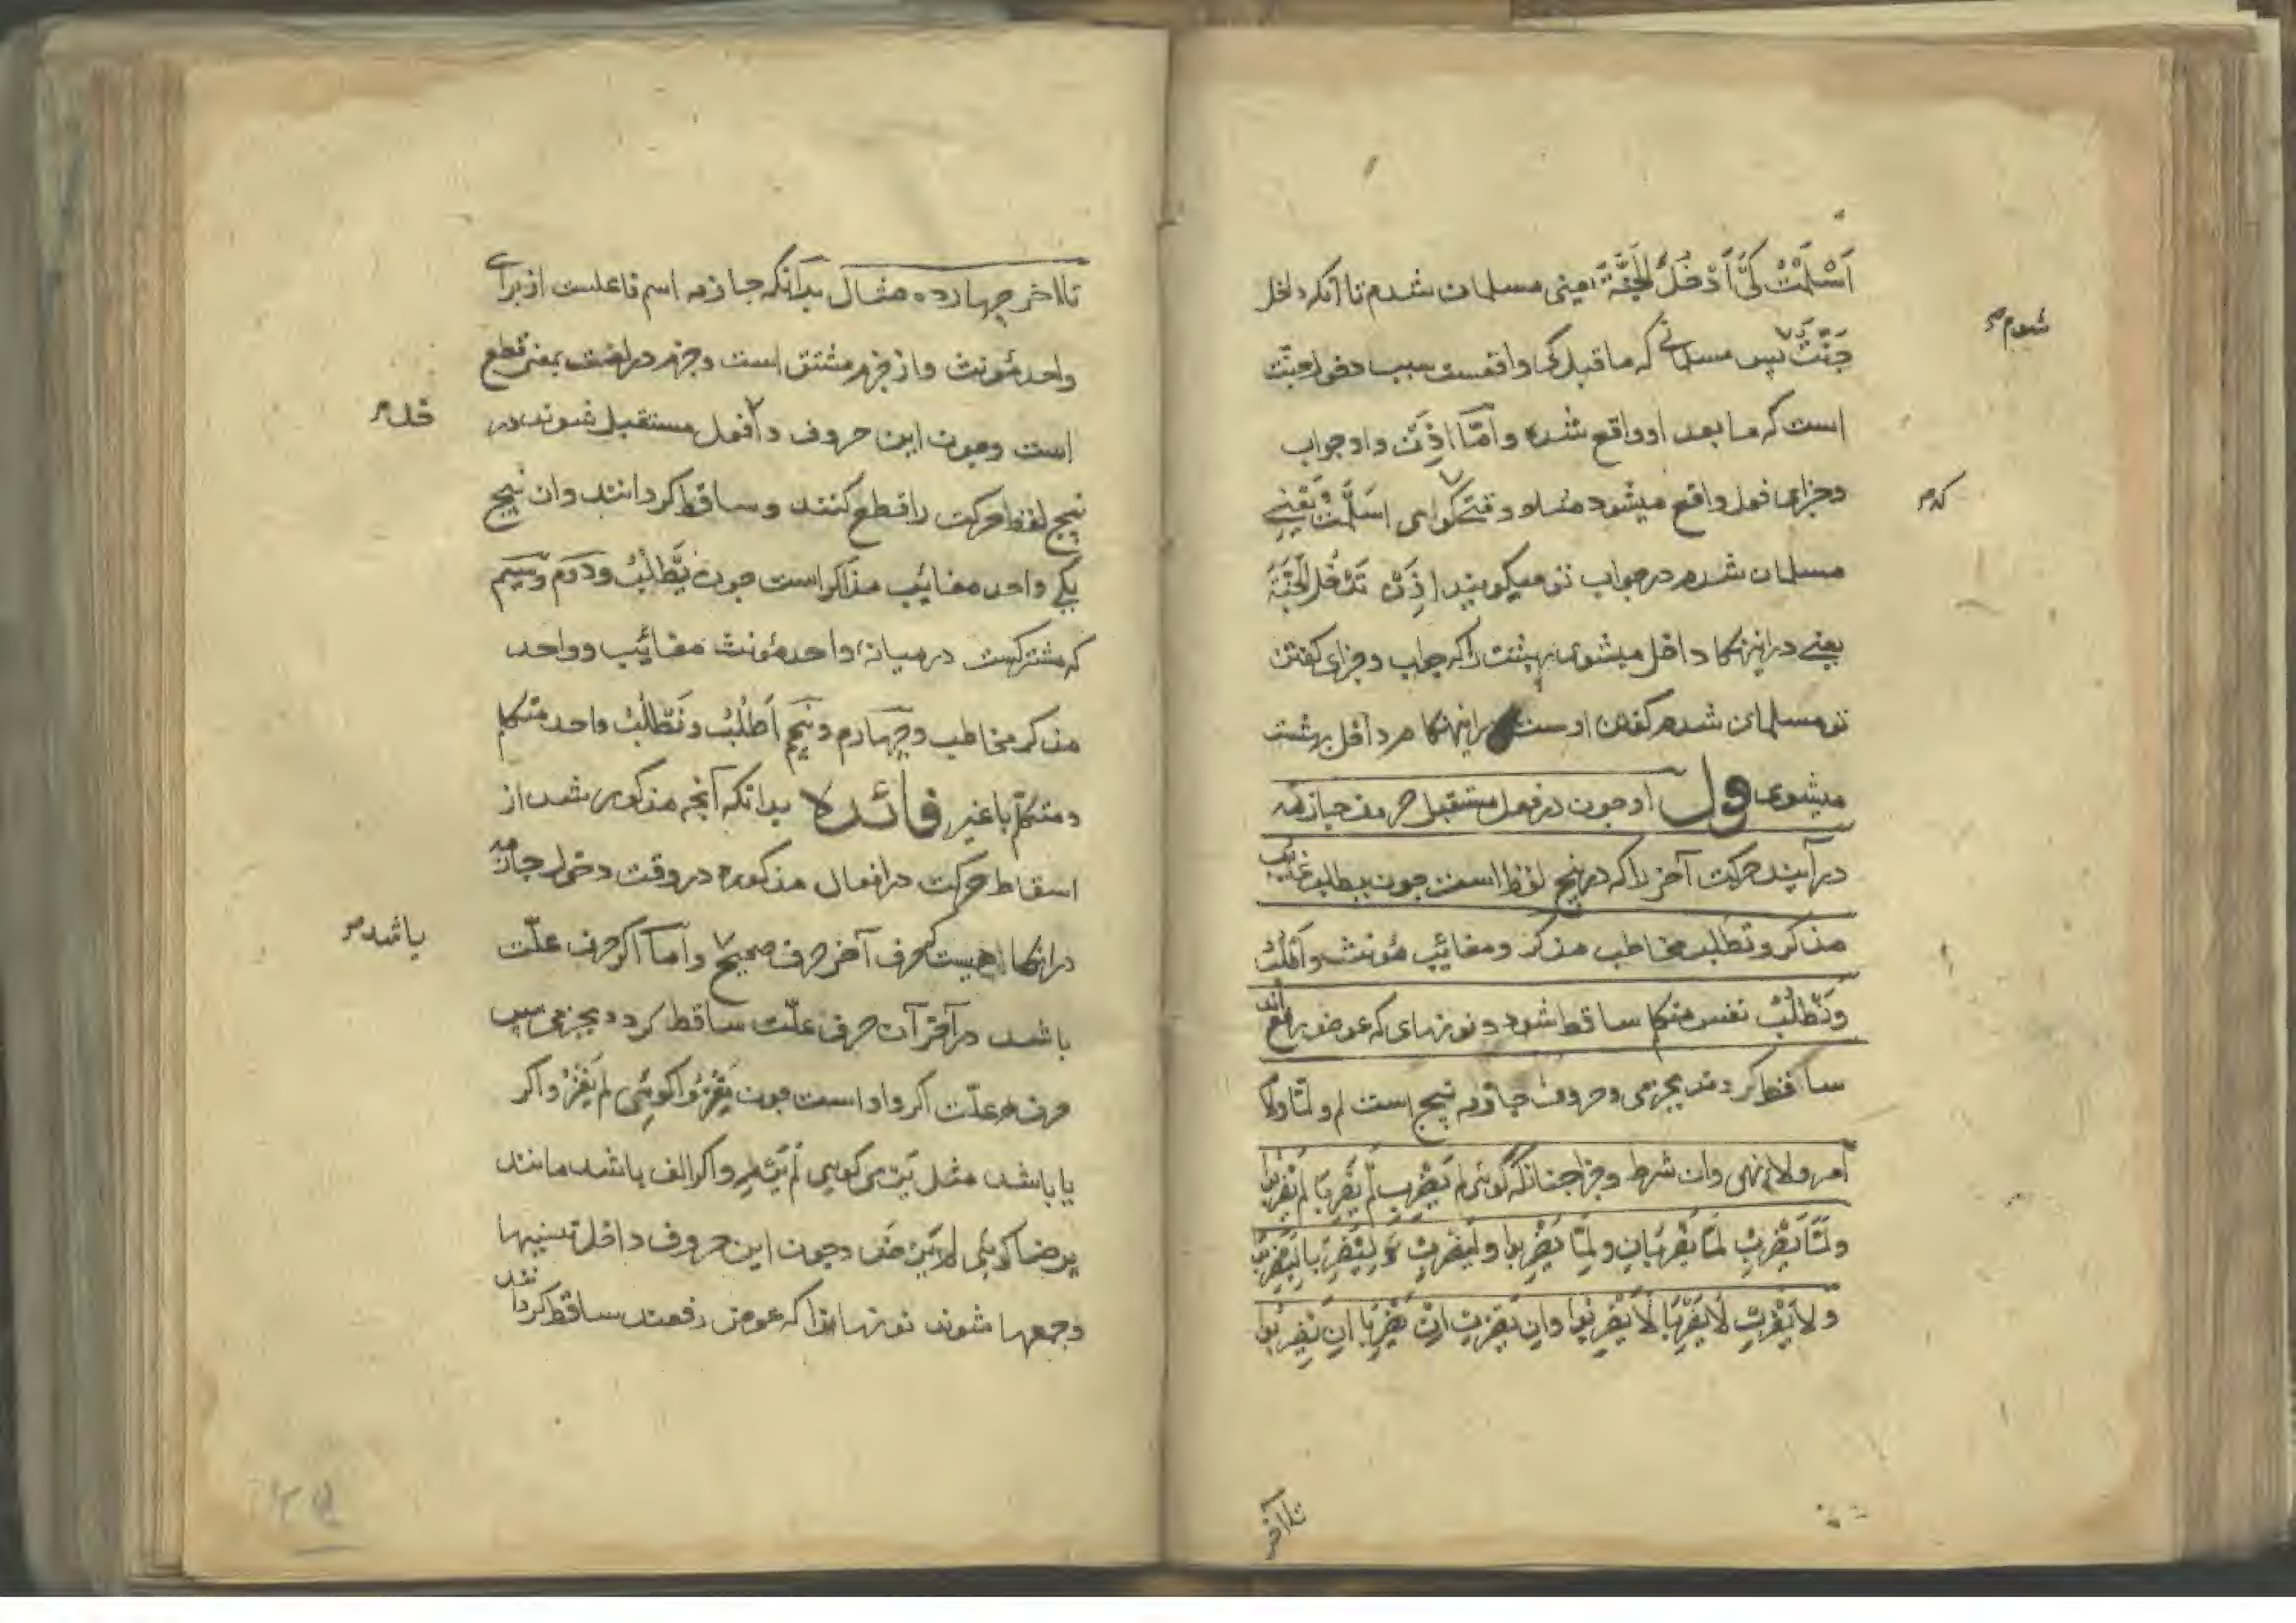 اَسْلَمْتُ کَیْ اَدْخُلَ الْجَنَّةَ یعنی مسلمان شدم تا آنکه داخل
شوم
جَنَّت پس مسلمانے که ماقبل کی واقعست سبب دخول جنّت
است که ما بعد او واقع شده و اَمّا اِذَنْ و او جواب
و جزای فعل واقع میشود مثلا وقتے که گوای اَسْلَمْتُ یَعْنِے
مسلمان شدم در جواب تو میگویند اِذَنْ تَدْخُلَ الْجَنَّةَ
یعنے دراینهنگام داخل میشوی بهشت را که جواب و جزای گفتن
تو مسلمان شدم گفتن اوست دراینهنگام داخل بهشت
میشوی قول او چون در فعل مستقبل حروف جازمه
درآیند حرکت آخر را که در پنج لفظ است چون یطلب غایب
مذکر و تطلب مخاطب مذکر و مغائب مؤنث و اَطْلُبُ
وَنَطْلُبُ نفس متکلم ساقط شود و نونهای که عوض رفع اند
ساقط گردند بجزمی و حروف جازمه پنج است لم و لمّا و لام
امر و لاء نهی و ان شرط و جزا چنانکه گوئی لم یَضْرِبْ لَمْ یَضْرِبَا لَمْ یَضْرِبُوا
وَلَمَّا یَضْرِبْ لَمَّا یَضْرِبَان وَلَمَّا یَضْرِبُوا وَلِیَضْرِبْ وَ لِیَضْرِبَا لِیَضْرِبُوا
وَ لاَ یَضْرِبْ لَا یَضْرِبَا لَا یَضْرِبُوا وَاِنْ یَضْرِبْ اِنْ یَضْرِبَا اِنْ یَضْرِبُوا
تا آخر
تا آخر چهارده مثال بدآنکه جازمه اسم فاعلست از برای
واحد مؤنث و از جزم مشتق است و جزم در لغت بمعنی قطع
است و چون این حروف داخل فعل مستقبل شوند در
پنج لفظ حرکت را قطع کنند و ساقط گردانند و ان پنج
یکے واحد مغائب مذاکر است چون یَطْلُبُ و دوم و سیم
که مشترکست در میانه واحد مؤنث مغائب و واحد
مذکر مخاطب و چهارم و پنجم اَطْلُبُ و نَطْلُبُ واحد متکلم
و متکلّم با غیر فائده بدانکه آنچه مذکور شد از
اسقاط حرکت در افعال مذکوره در وقت دخول جازمه
درانکاهیست که حرف آخر حرف صحیح و اَما اگر حرف علّت
باشد
باشد در آخر آن حرف علّت ساقط گردد بجزمی پس
حرف علّت اگر واو است چون یَغْزُو گوئی لَمْ یَغْزُ و اگر
یا باشد مثل یَرْمی گویی لَمْ یَرْمِ و اگر الف باشد مانند
یرضا گوئی لا یَرْضَ و چون این حروف داخل تثنیها
و جمعها شوند نونها را که عوض رفعند ساقط گردانند